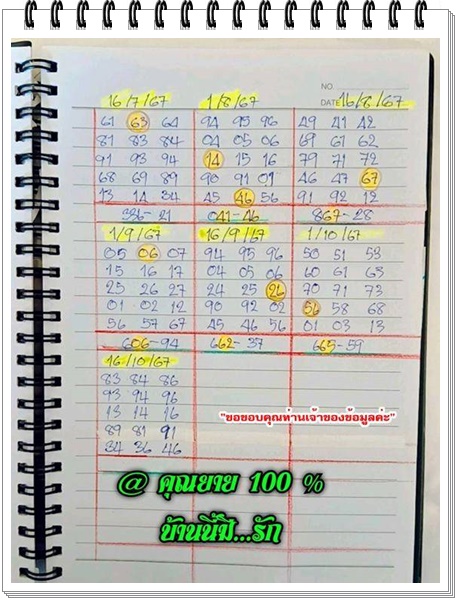 NO.
DATE 16/8/67
16/7/67 1/8/67
61 63 64 94 95 96 49 41 42
81 83 84 04 05 06 69 61 62
91 93 94 14 15 16 79 71 72
68 69 89 90 91 01 46 47 67
13 14 34 45 46 56 91 92 12
336-21 041-46 867-28
1/9/67 16/9/67 1/10/67
05 06 07 94 95 96 50 51 53
15 16 17 04 05 06 60 61 63
25 26 27 24 25 26 70 71 73
01 02 12 90 92 02 56 58 68
56 57 67 45 46 56 01 03 13
606-94 662-37 665-59
16/10/67
83 84 86
93 94 96
13 14 16
89 81 91
34 36 46
"ขอขอบคุณท่านเจ้าของข้อมูลค่ะ"
@ คุณยาย 100 %
บ้านนี้มี...รัก